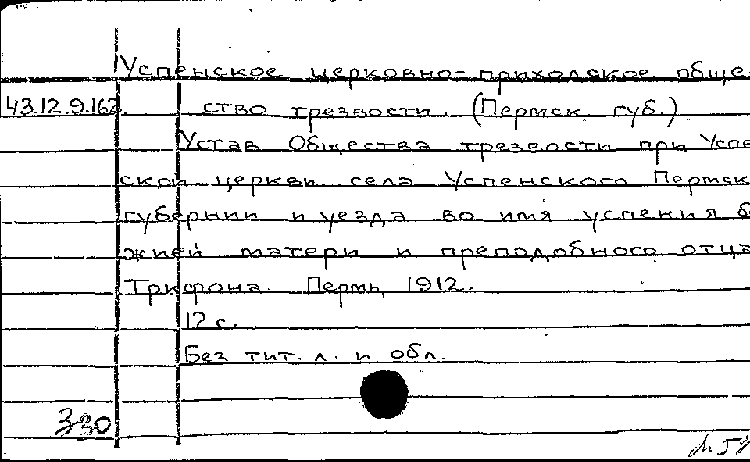 Успенское церковно-приходское обще-
43.12.9.162. ство трезвости. (Пермск. губ.)
Устав Общества трезвости при Успе
ской церкви села Успенского Пермск
губернии и уезда во имя успения б
жией матери и преподобного отца
Трифона. Пермь, 1912.
12 с.
Без тит. л. и обл.
330